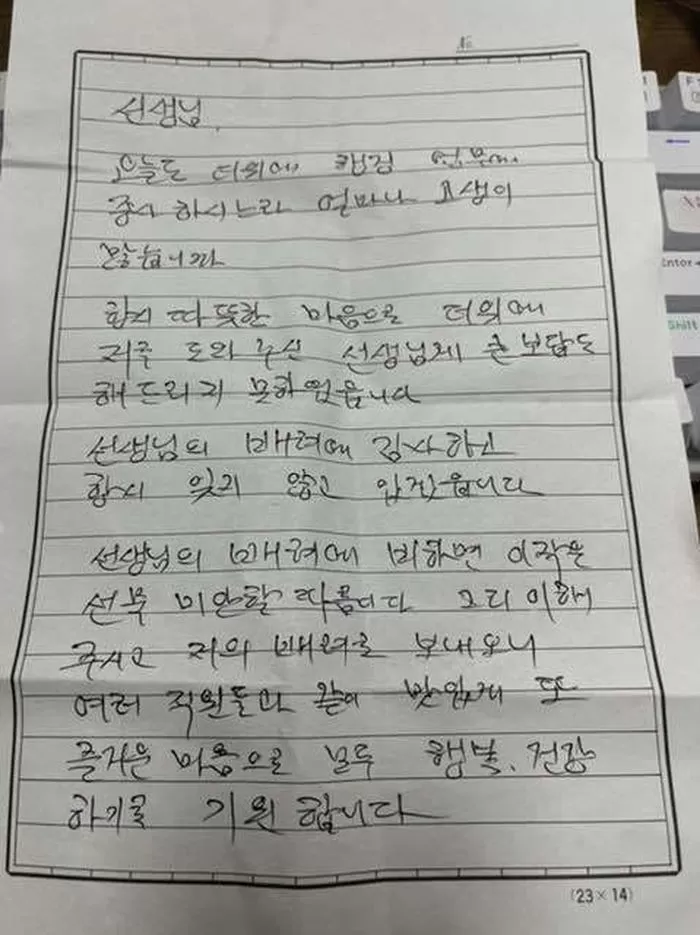 No.
선생님,
오늘도 더위에 업무에
종사 하시느라 얼마나 고생이
많습니까
항시 따뜻한 마음으로 더위에
저를 도와 주신 선생님께 큰 보답도
해드리지 못하였읍니다
선생님의 배려에 감사하고
항시 잊지 않고 있겠읍니다
선생님의 배려에 비하면 이 작은
선물 미안할 따름이다 그리 이해
주시고 저의 배려를 보내오니
여러 직원들과 같이 맛있게 또
즐거운 마음으로 모두 행복, 건강
하기를 기원 합니다
(23 × 14)
Enter
Shift